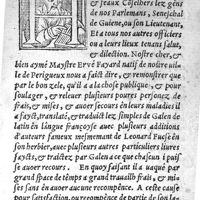 & feaux Cõseilers lez gens
de nos Parlemans, Seneschal
de Guiene, ou son Lieutenant,
Et a tous nos autres officiers
ou a leur lieux tenans salut,
& dilection. Nostre cher, &
bien aymé Maystre Ervé Fayard natif de nostre uil-
le de Perigueux nous a faict dire, & remonstrer que
par le bon zele, qu'il a a la chose publique, & pour
soulager, & releuer plusieurs poures persones, de
frais, & mises, & auoer secours en leurs maladies il
a fayct, translaté, & traduict les simples de Galen de
latin en langue françoise auec plusieurs additions
d'auteurs fameux mesmemant de Leonard Fucsi en
son herbier, auec plusieurs autres particuliers liures
fayctz, & traictez par Galen a ce que chacun i puis-
se auoer recours. En quoy faisant il a uaqué par
grand space de temps a grand trauail & frais, & mi-
ses sans en auoer aucune recompence. A ceste cause
pour satisfaction, ou recompence de partie de son la-